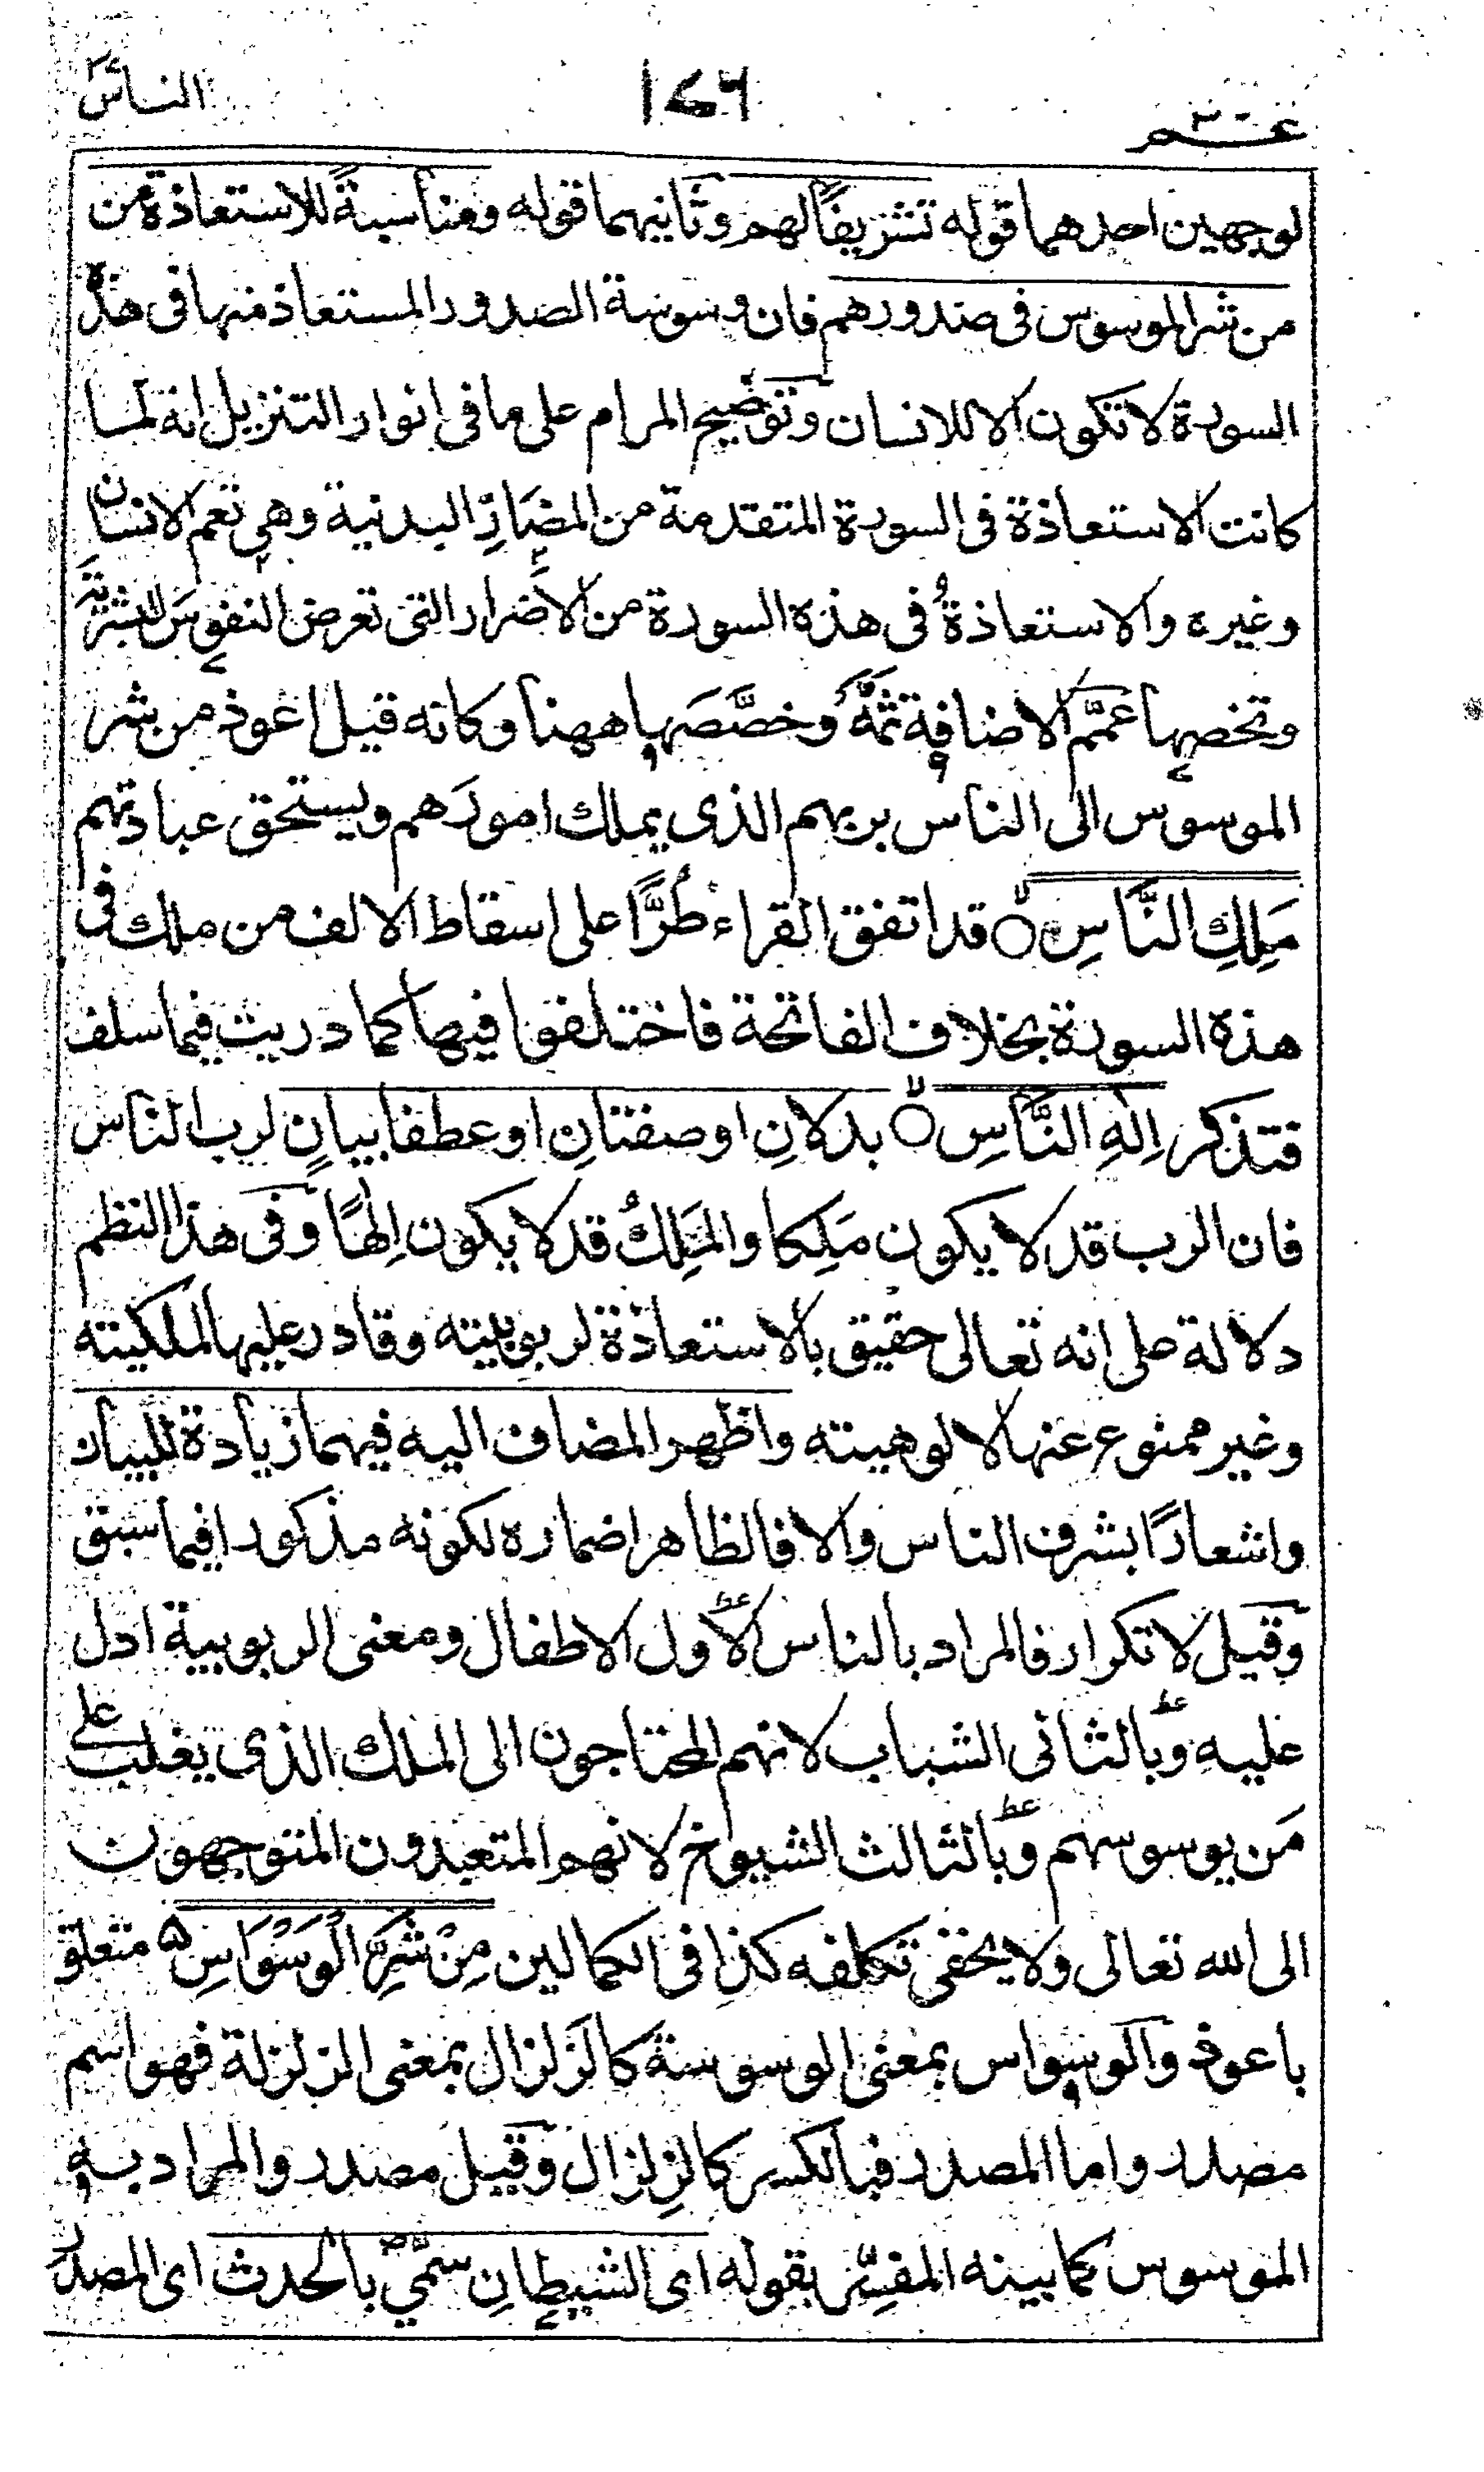 عم ٣٠
١٤٦
الناس
لوجهين احدهما قوله تشريفًا لهم وثانيهما قوله ومناسبةً للاستعاذة من
من شر الموسوس فى صدورهم فان وسوسة الصدور المستعاذ منها فى هذه
السورة لا تكون الا للانسان وتوضيح المرام على ما فى انوار التنزيل انه لما
كانت الاستعاذة فى السورة المتقدمة من المضارِّ البدنية وهى تعم الانسان
وغيره والاستعاذةُ فى هذه السورة من الاضرار التى تعرض النفوسَ البشريةَ
وتخصها عمَّم الاضافة ثمَّه وخصَّصَها ههنا وكانه قيل اعوذ من شر
الموسوس الى الناس بربهم الذى يملك امورَهم ويستحق عبادتهم
مَلِكِ النَّاسِ ۙ قد اتفق القراء طُرًّا على اسقاط الالف من ملك فى
هذه السورة بخلاف الفاتحة فاختلفوا فيها كما دريت فيما سلف
فتذكر اِلٰهِ النَّاسِ ۙ بدلانِ او صفتانِ او عطفا بيانٍ لرب الناس
فان الرب قد لا يكون مَلِكا والمَلِكُ قد لا يكون اِلٰهًا وفى هذا النظم
دلالة على انه تعالى حقيق بالاستعاذة لربوبيته وقادر عليها لملكيته
وغير ممنوع عنها لالوهيته واظهر المضاف اليه فيهما زيادة للبيان
واشعارًا بشرف الناس والا فالظاهر اضماره لكونه مذكورا فيما سبق
وقيل لا تكرار فالمراد بالناس الاول الاطفال ومعنى الربوبية ادل
عليه وبالثانى الشباب لانهم المحتاجون الى الملك الذى يغلب على
مَن يوسوسهم وبالثالث الشيوخ لانهم المتعبدون المتوجهون
الى الله تعالى ولا يخفى تكلفه كذا فى الكمالين مِنْ شَرِّ الْوَسْوَاسِ ۵ متعلق
باعوذ والوسواس بمعنى الوسوسة كالزَلزال بمعنى الزلزلة فهو اسم
مصدر واما المصدر فبالكسر كالزِلزال وقيل مصدر والمراد به
الموسوس كما بينه المفسِّر بقوله اى الشيطانِ سمّي بالحدث اى المصدر